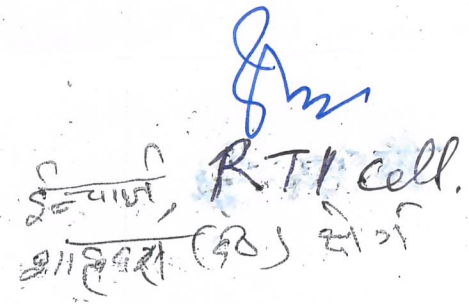 ईन्चार्ज, RTI cell.
शाहदरा (द०) क्षेत्र